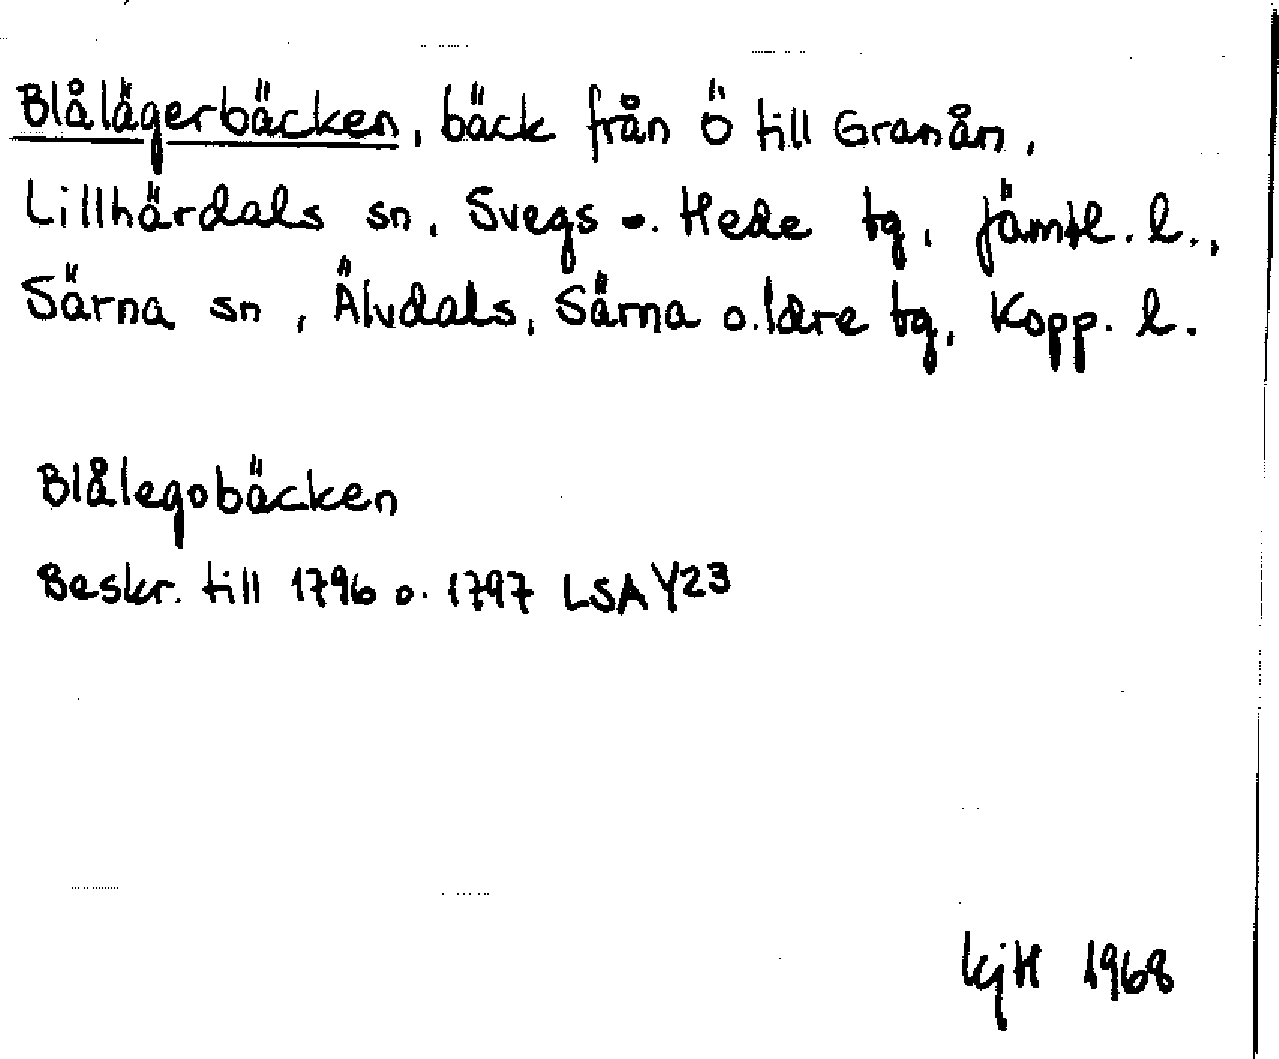 Blålägerbäcken, bäck från Ö till Granån,
Lillhärdals sn, Svegs o. Hede tg, Jämtl. l.,
Särna sn, Älvdals, Särna o. Idre tg, Kopp. l.
Blålegobäcken
Beskr. till 1796 o. 1797 LSA Y23
kjH 1968